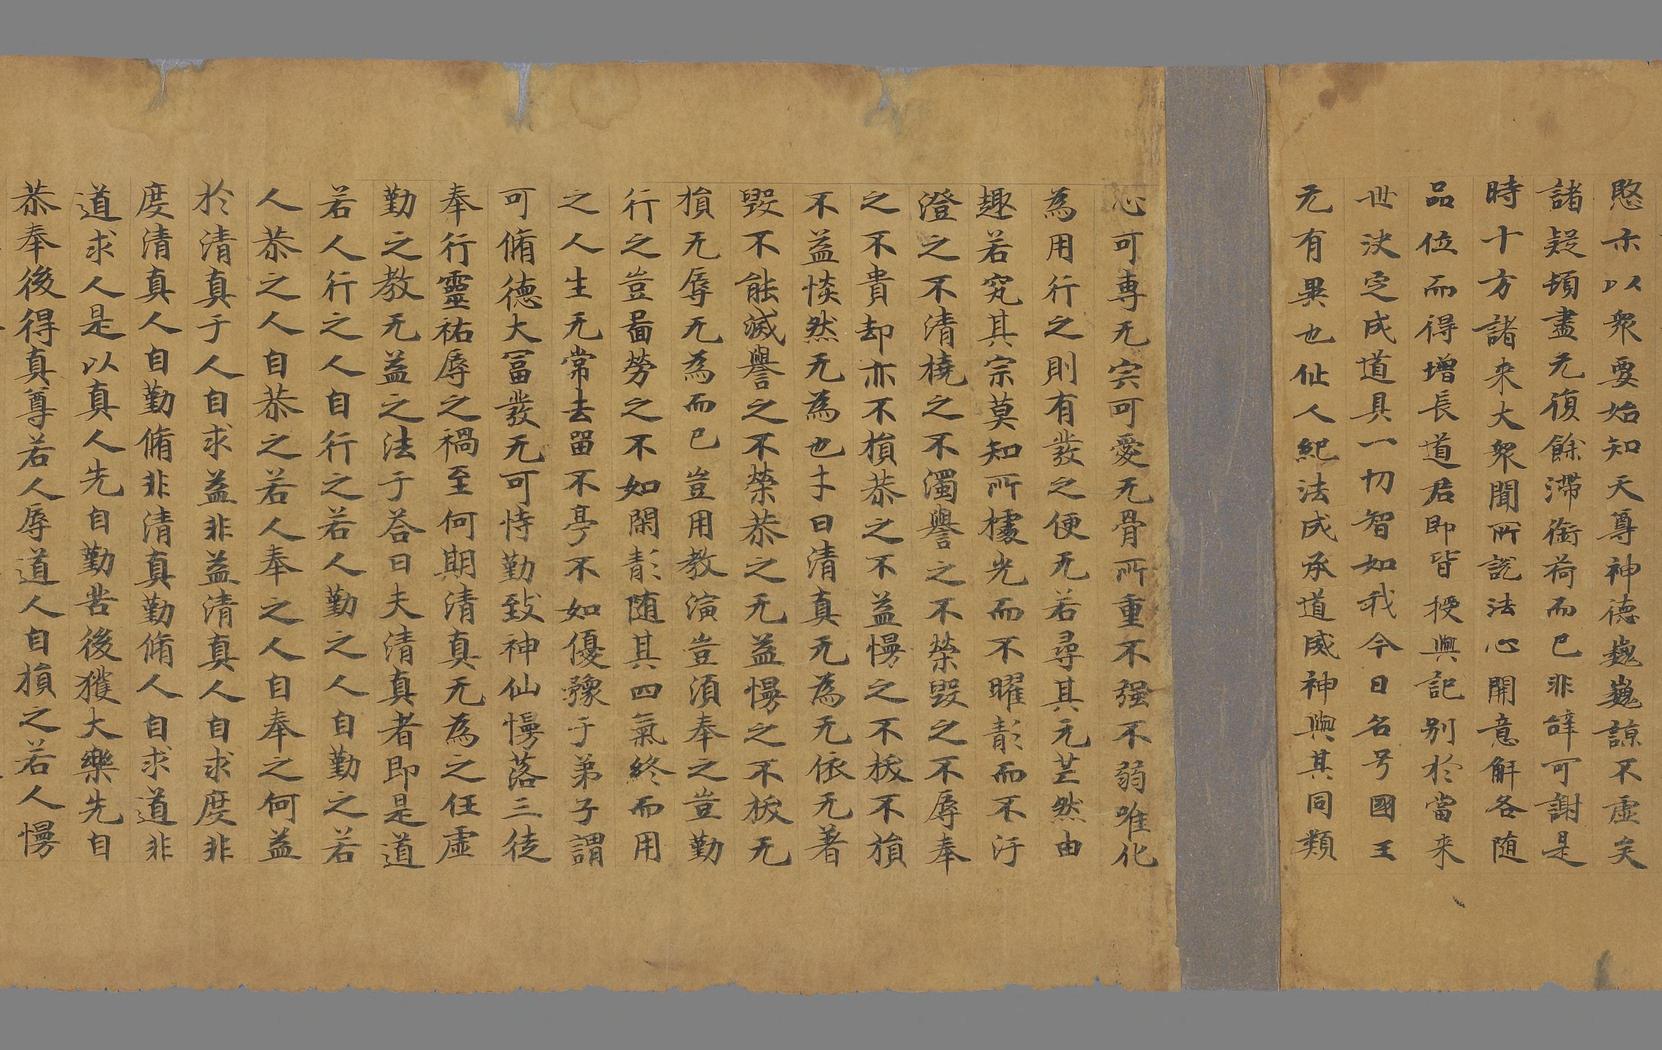 愍尒以衆要始知天尊神德巍巍諒不虛矣
諸疑頓盡无復餘滯銜荷而已非辝可謝是
時十方諸來大衆聞所說法心開意解各随
品位而得增長道君即皆授與記别於當來
世決定成道具一切智如我今日名号國王
无有異也仙人紀法成承道威神與其同類
心可專无宗可愛无骨所重不强不弱唯化
為用行之則有叢之便无若尋其无芒然由
趣若究其宗莫知所據光而不曜彰而不汙
澄之不清橈之不濁譽之不榮毀之不辱奉
之不貴却亦不損恭之不益慢之不板不損
不益惔然无為也子曰清真无為无依无著
毀不能滅譽之不榮恭之无益慢之不板无
損无辱无為而已豈用教演豈湏奉之豈勤
行之豈啚勞之不如閑彰随其四氣終而用
之人生无常去留不亭不如優豫于弟子謂
可脩德大冨叢无可恃勤致神仙慢落三徒
奉行靈祐辱之禍至何期清真无為之任虛
勤之教无益之法于荅曰夫清真者即是道
若人行之人自行之若人勤之人自勤之若
人恭之人自恭之若人奉之人自奉之何益
於清真于人自求益非益清真人自求度非
度清真人自勤脩非清真勤脩人自求道非
道求人是以真人先自勤苦後獲大樂先自
恭奉後得真尊若人辱道人自損之若人慢